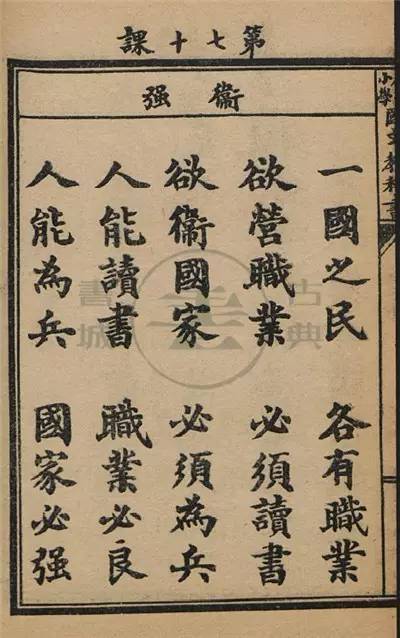 第七十課
衞 强
一國之民 各有職業
欲營職業 必須讀書
欲衞國家 必須為兵
人能讀書 職業必良
人能為兵 國家必强
小學國文教科書
古典書城